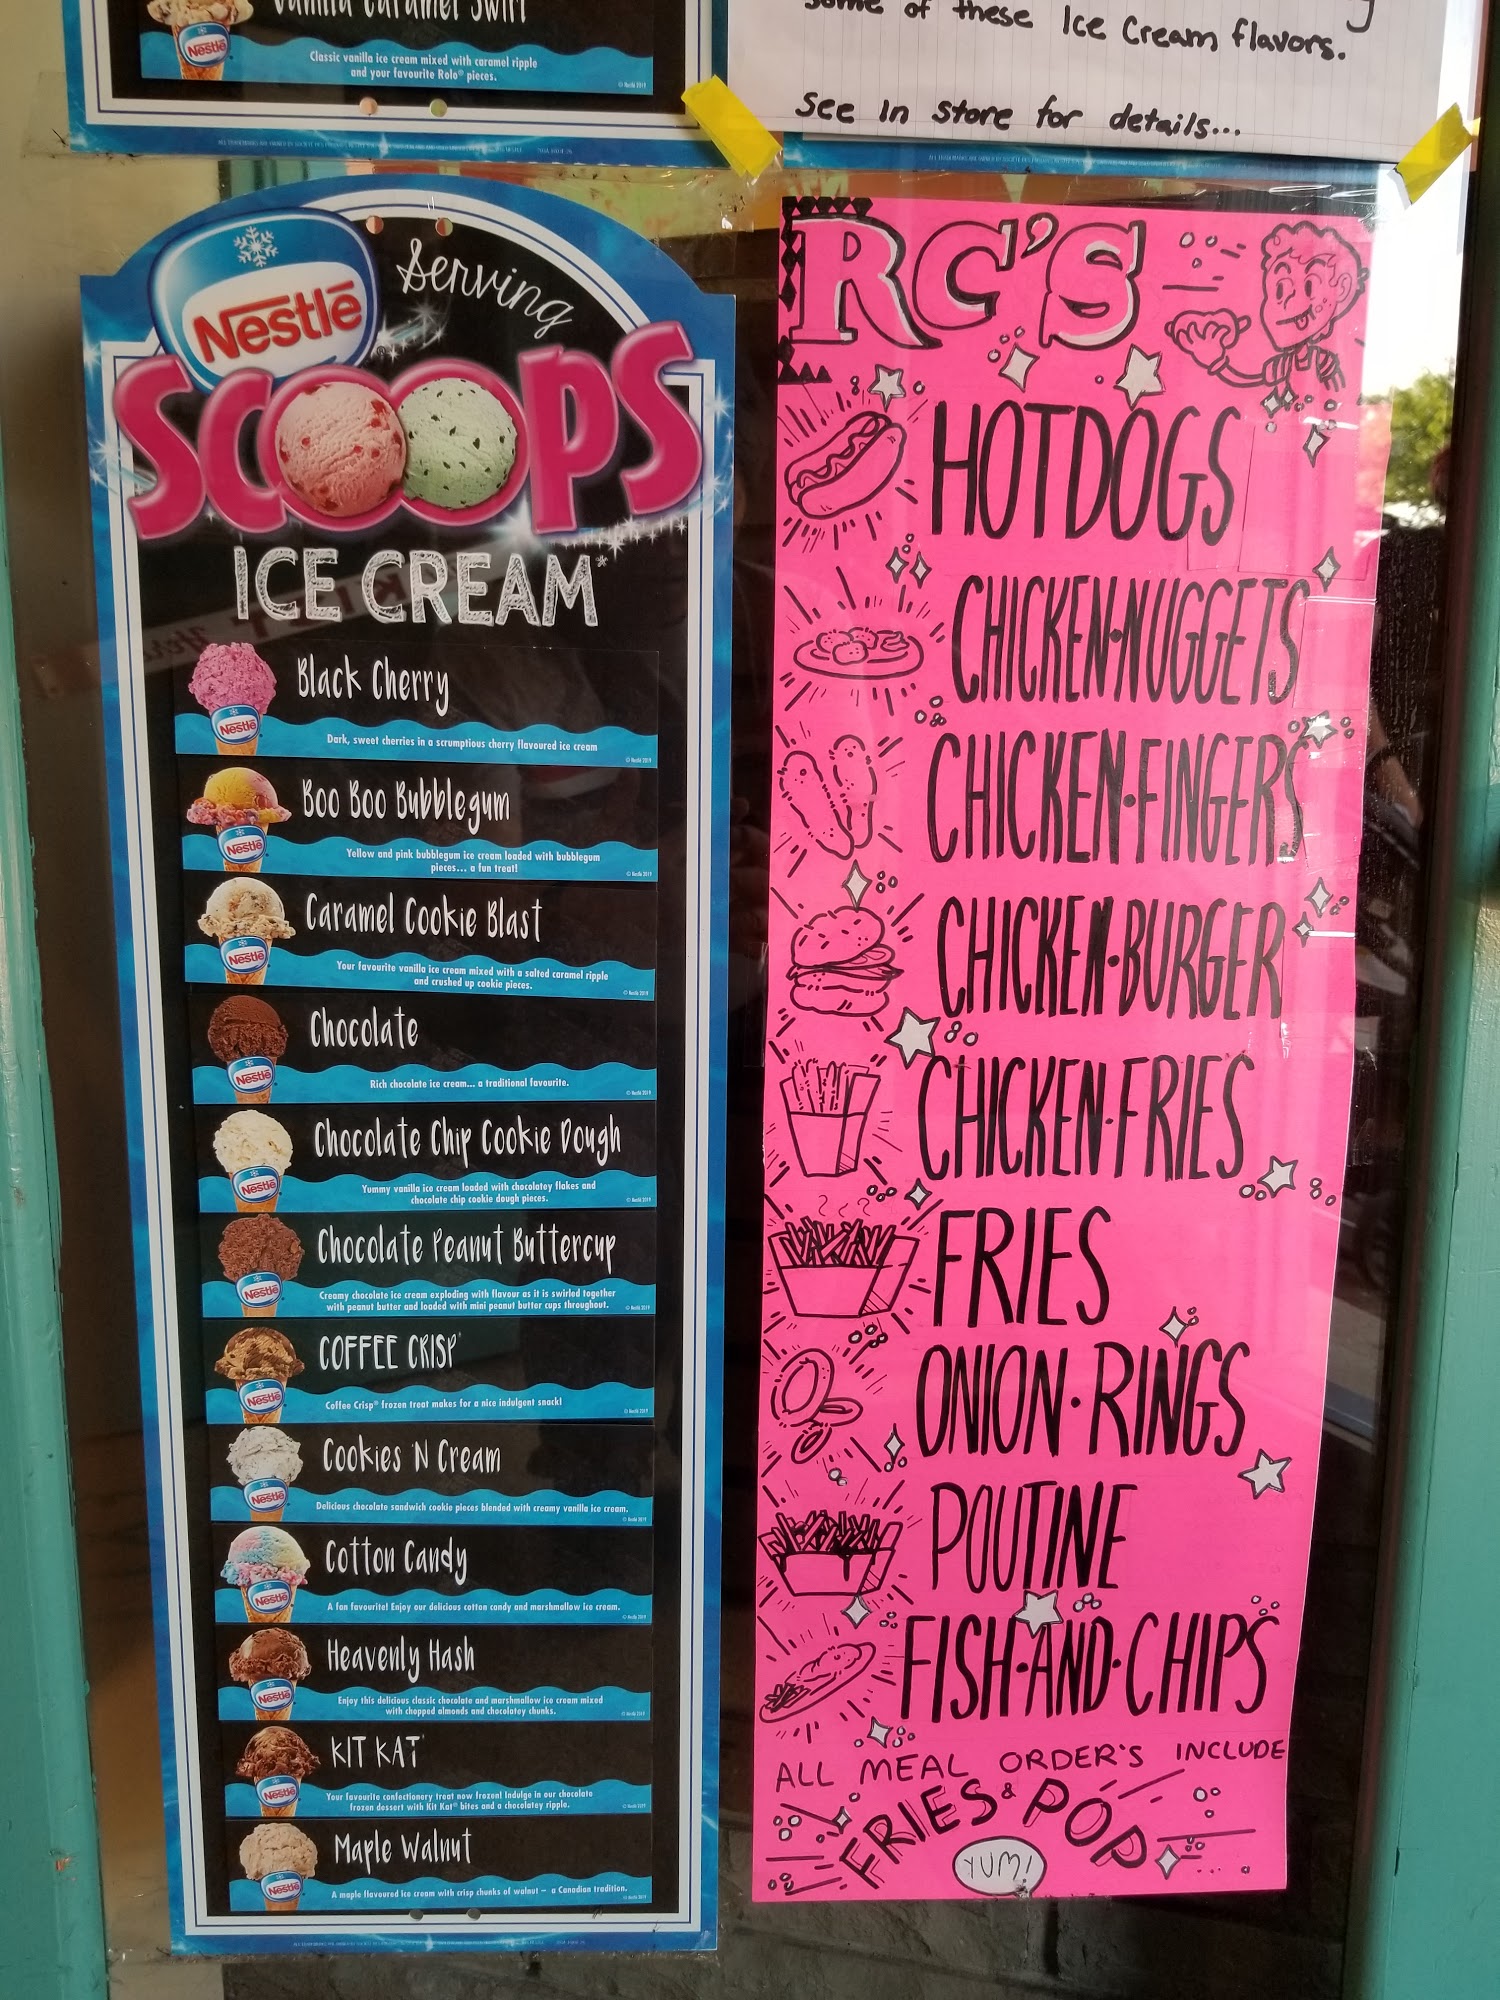 Vanilla Caramel Swirl
Nestlé
Classic vanilla ice cream mixed with caramel ripple
and your favourite Rolo® pieces.
some of these Ice Cream flavors.
see in store for details...
Nestlé
Serving
SCOOPS
ICE CREAM*
Black Cherry
Nestlé
Dark, sweet cherries in a scrumptious cherry flavoured ice cream
© Nestlé 2019
Boo Boo Bubblegum
Nestlé
Yellow and pink bubblegum ice cream loaded with bubblegum
pieces... a fun treat!
© Nestlé 2019
Caramel Cookie Blast
Nestlé
Your favourite vanilla ice cream mixed with a salted caramel ripple
and crushed up cookie pieces.
© Nestlé 2019
Chocolate
Nestlé
Rich chocolate ice cream... a traditional favourite.
© Nestlé 2019
Chocolate Chip Cookie Dough
Nestlé
Yummy vanilla ice cream loaded with chocolatey flakes and
chocolate chip cookie dough pieces.
© Nestlé 2019
Chocolate Peanut Buttercup
Nestlé
Creamy chocolate ice cream exploding with flavour as it is swirled together
with peanut butter and loaded with mini peanut butter cups throughout.
© Nestlé 2019
COFFEE CRISP®
Nestlé
Coffee Crisp® frozen treat makes for a nice indulgent snack!
© Nestlé 2019
Cookies 'N Cream
Nestlé
Delicious chocolate sandwich cookie pieces blended with creamy vanilla ice cream.
© Nestlé 2019
Cotton Candy
Nestlé
A fan favourite! Enjoy our delicious cotton candy and marshmallow ice cream.
© Nestlé 2019
Heavenly Hash
Nestlé
Enjoy this delicious classic chocolate and marshmallow ice cream mixed
with chopped almonds and chocolatey chunks.
© Nestlé 2019
KIT KAT®
Nestlé
Your favourite confectionery treat now frozen! Indulge in our chocolate
frozen dessert with Kit Kat® bites and a chocolatey ripple.
© Nestlé 2019
Maple Walnut
Nestlé
A maple flavoured ice cream with crisp chunks of walnut – a Canadian tradition.
© Nestlé 2019
RC'S
HOTDOGS
CHICKEN·NUGGETS
CHICKEN·FINGERS
CHICKEN·BURGER
CHICKEN·FRIES
FRIES
ONION·RINGS
POUTINE
FISH·AND·CHIPS
ALL MEAL ORDER'S INCLUDE
FRIES & POP
YUM!